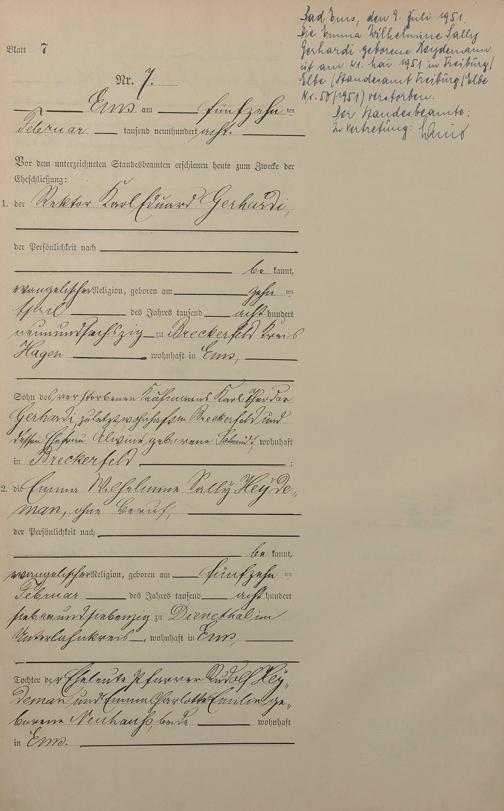 Bad Ems, den 9. Juli 1951.
Die Emma Wilhelmine Sally
Gerhardi geborene Heydemann
ist am 21. Mai 1951 in Freiburg/
Elbe (Standesamt Freiburg/Elbe
Nr. 50/1951) verstorben.
Der Standesbeamte:
In Vertretung:
Blatt 7
Nr. 7.
Ems am fünfzehn ten
Februar tausend neunhundert acht.
Vor dem unterzeichneten Standesbeamten erschienen heute zum Zwecke der
Eheschließung:
1. der Rektor Karl Eduard Gerhardi,
der Persönlichkeit nach
be kannt,
evangelischer Religion, geboren am zehn ten
April des Jahres tausend acht hundert
neunundsechszig zu Breckerfeld Kreis
Hagen wohnhaft in Ems,
Sohn des verstorbenen Kaufmanns Karl Theodor
Gerhardi, zuletzt wohnhaft in Breckerfeld und
dessen Ehefrau Alwine geborene Schmidt, wohnhaft
in Breckerfeld ;
2. die Emma Wilhelmine Sally Heyde-
man, ohne Beruf,
der Persönlichkeit nach
be kannt,
evangelischer Religion, geboren am fünfzehn ten
Februar des Jahres tausend acht hundert
siebenundsiebenzig zu Dienethal im
Unterlahnkreis, wohnhaft in Ems,
Tochter der Eheleute Pfarrer Rudolf Hey-
deman und Emma Charlotte Emilie ge-
borene Neuhauß, beide wohnhaft
in Ems.